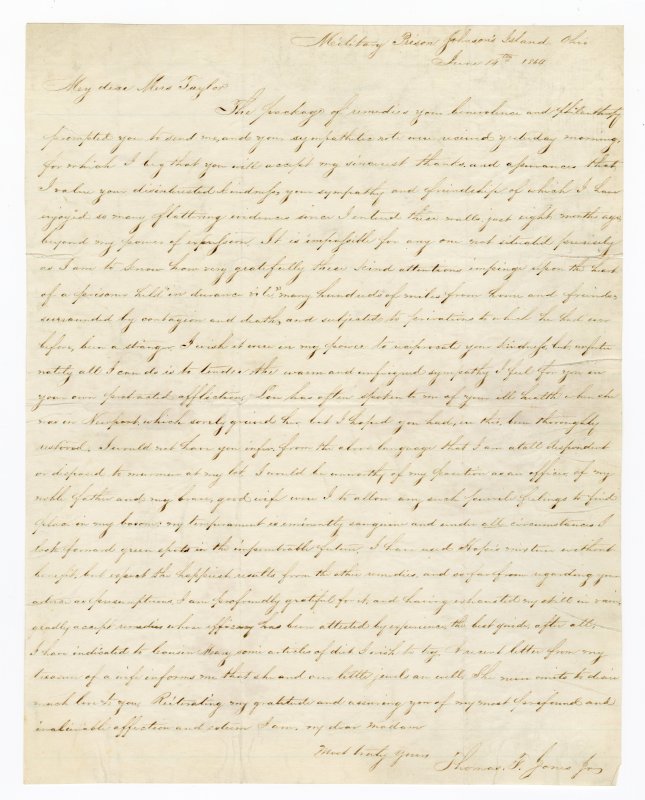 Military Prison Johnson's Island Ohio
June 14th 1864
My dear Miss Taylor
The package of remedies your benevolence and philanthropy
prompted you to send me, and your sympathetic note were recieved yesterday morning,
for which I beg that you will accept my sincerest thanks, and assurances that
I value your disinterested kindness, your sympathy and friendship of which I have
enjoyed so many flattering evidences since I entered these walls, just eight months ago,
beyond my powers of expression. It is impossible for any one not situated precisely
as I am to know how very gratefully these kind attentions impinge upon the heart
of a prisoner held "in durance vile" many hundreds of miles from home and friends,
surrounded by contagion and death, and subjected to privations to which he had ever
before, been a stranger. I wish it were in my power to reciprocate your kindness, but unfortu-
nately all I can do is to tender the warm and unfeigned sympathy I feel for you in
your own protracted affliction, Lou has often spoken to me of your ill health when she
was in Newport, which sorely grieved her but I hoped you had, ere this, been thoroughly
restored. I would not have you infer, from the above language that I am atall despondent
or disposed to murmur at my lot. I would be unworthy of my position as an officer, of my
noble father and my brave, good wife were I to allow any such feelings to find
place in my bosom: my temperament is eminently sanguine and under all circumstances I
look forward green spots in the impenetrable future. I have used mixture without
benefit, but expect the happiest results from the other remedies, and so far from regarding your
action as presumptious I am profoundly grateful for it, and having exhausted my skill in vain,
gladly accept remedies whose efficacy has been attested by experience, the best guide, after all.
I have indicated to Cousin Mary some articles of diet I wish to try. A recent letter from my
treasure of a wife informs me that she and our little jewels are well. She never omits to
much love to you. Reiterating my gratitude and assuring you of my most profound and
inalienable affection and esteem I am, my dear madam
Most truly yours
Thomas. F. Jones Jr.